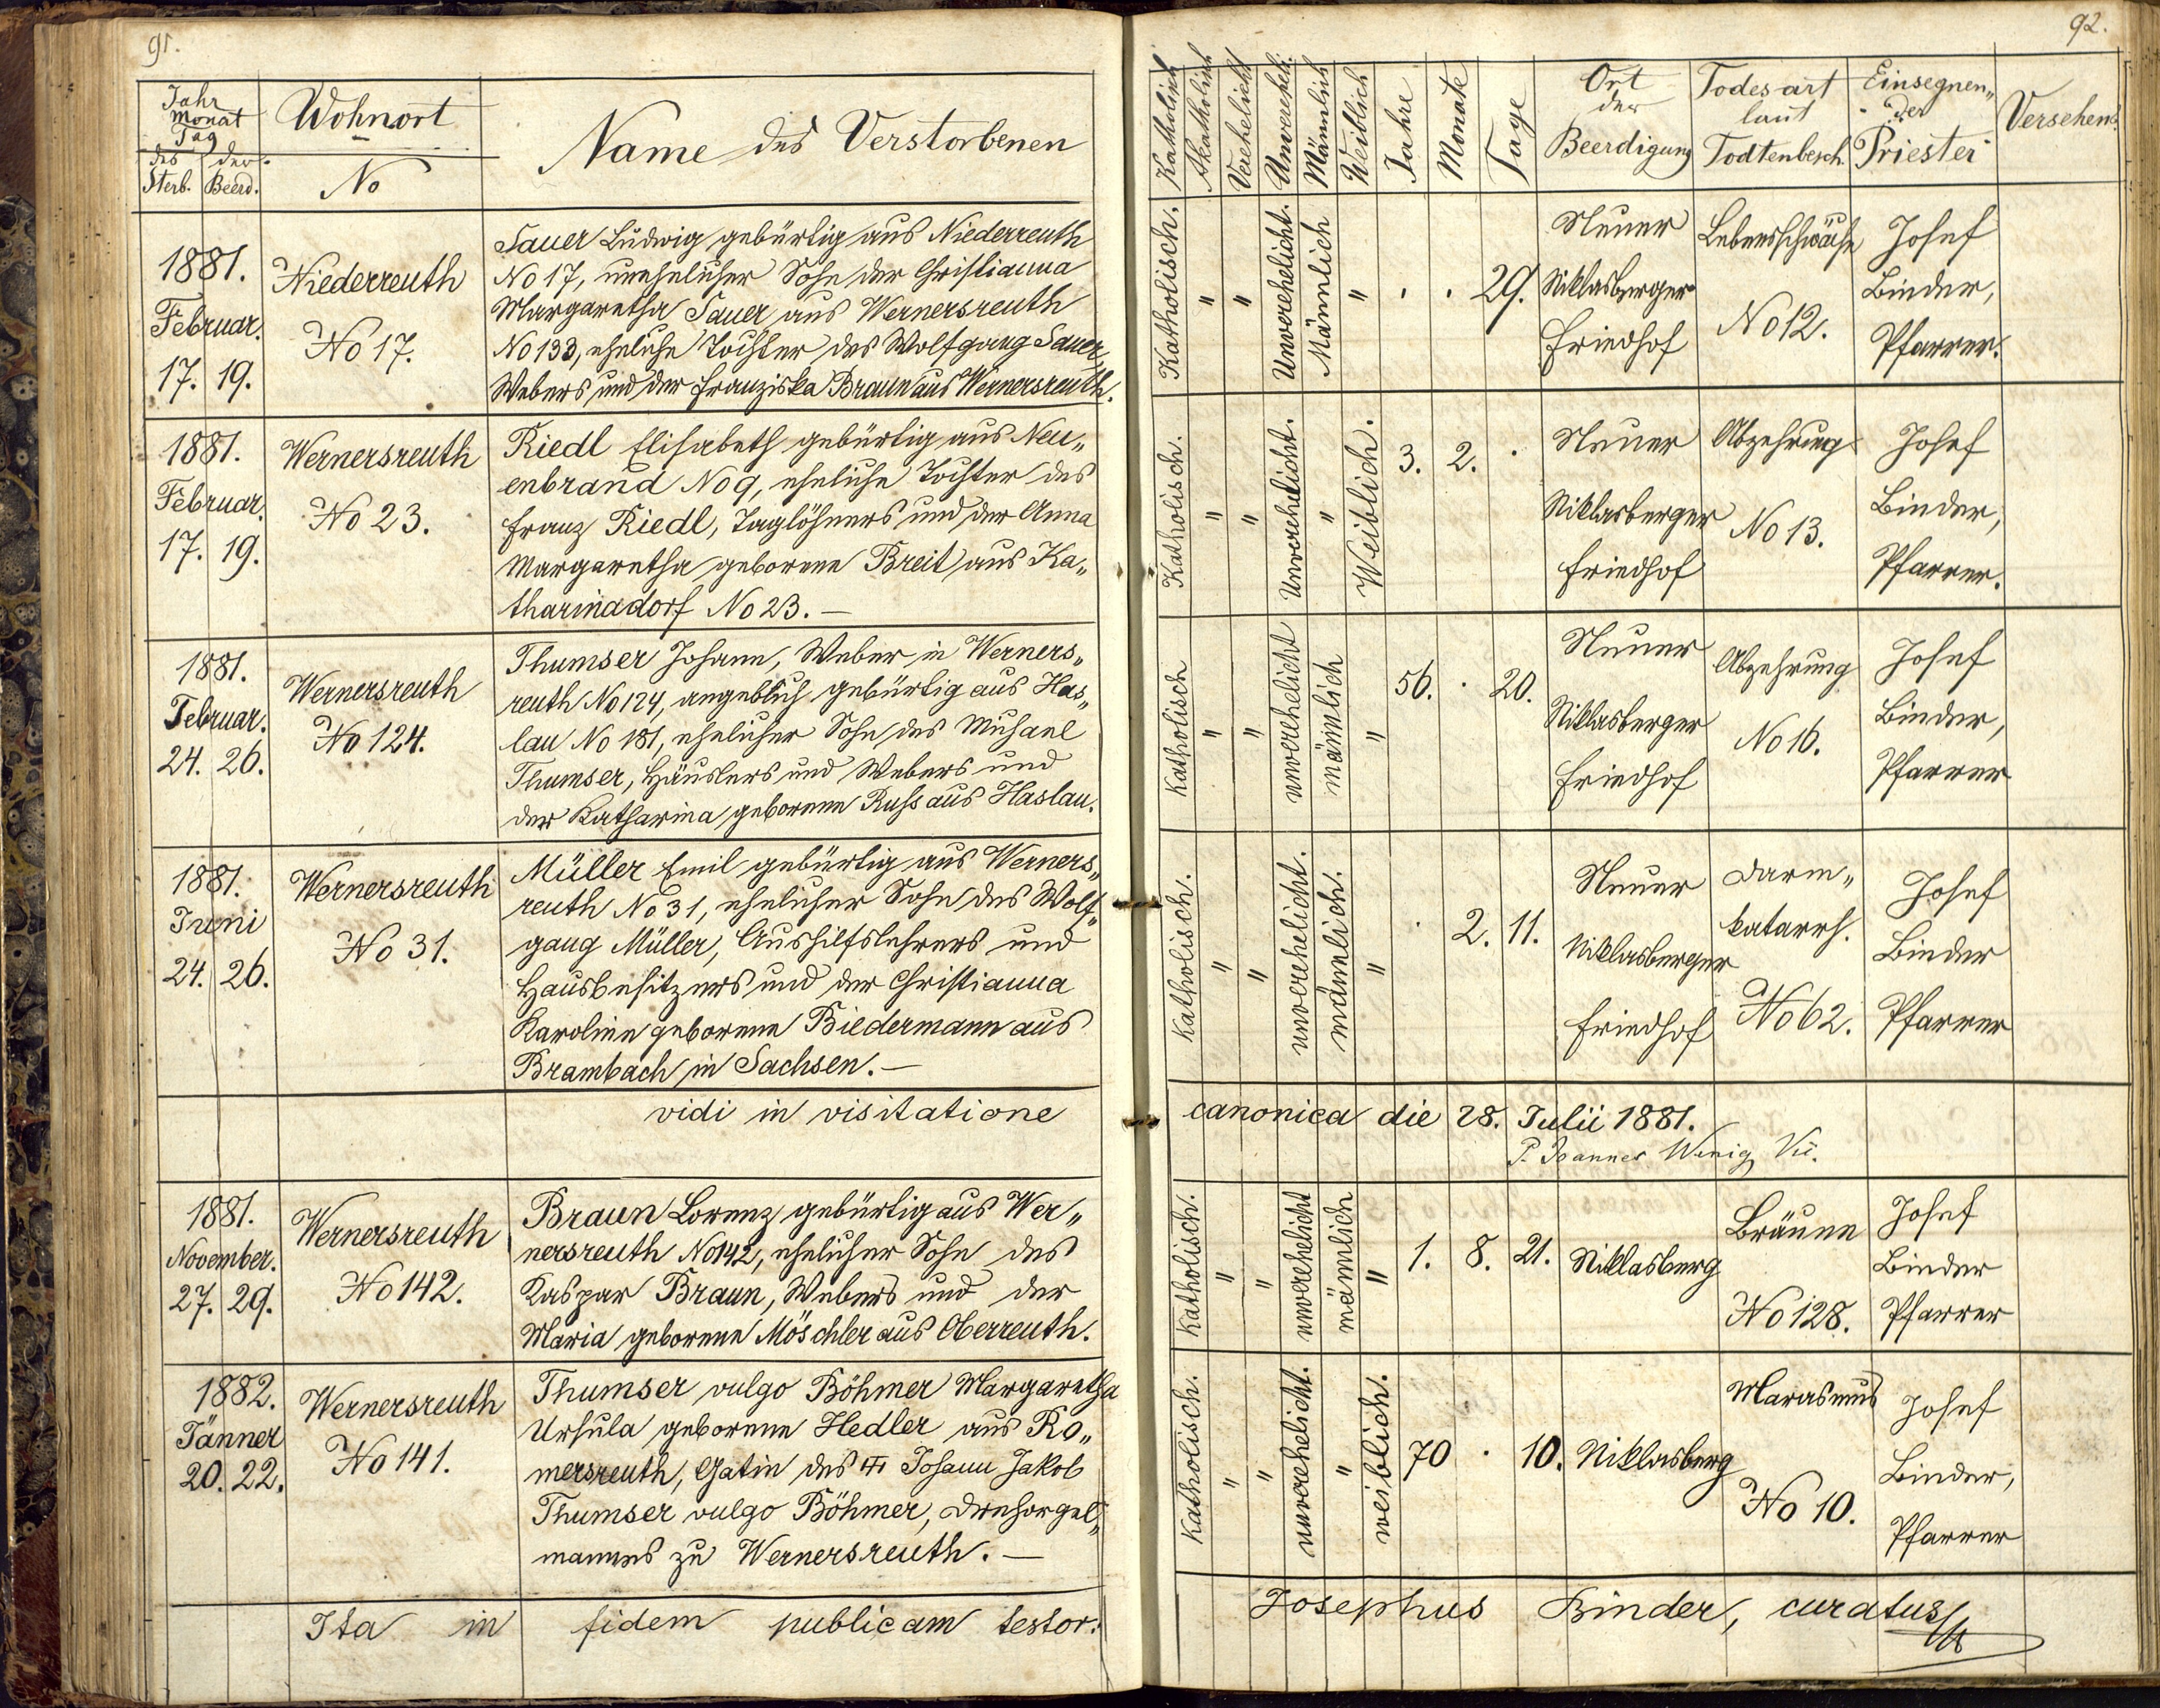 91.
Jahr
Monat
Tag
des Sterb.
der Beerd.
Wohnort
No
Name des Verstorbenen
1881.
Februar.
17. 19.
Niederreuth
No 17.
Sauer Ludwig gebürtig aus Niederreuth
No 17, unehelicher Sohn der Christianna
Margaretha Sauer aus Wernersreuth
No 133, eheliche Tochter des Wolfgang Sauer,
Webers und der Franziska Braun aus Wernersreuth.
1881.
Februar.
17. 19.
Wernersreuth
No 23.
Riedl Elisabeth gebürtig aus Neu„
enbrand No 9, eheliche Tochter des
Franz Riedl, Taglöhners und der Anna
Margaretha geborene Breit aus Ka„
tharinadorf No 23. —
1881.
Februar.
24. 26.
Wernersreuth
No 124.
Thumser Johann, Weber in Werners„
reuth No 124, angeblich gebürtig aus Has„
lau No 181, ehelicher Sohn des Michael
Thumser, Häuslers und Webers und
der Katharina geborene Russ aus Haslau.
1881.
Juni
24. 26.
Wernersreuth
No 31.
Müller Emil gebürtig aus Werners„
reuth No 31, ehelicher Sohn des Wolf„
gang Müller, Aushilfslehrers und
Hausbesitzers und der Christianna
Karoline geborene Biedermann aus
Brambach in Sachsen. —
vidi in visitatione
1881.
November.
27. 29.
Wernersreuth
No 142.
Braun Lorenz gebürtig aus Wer„
nersreuth No 142, ehelicher Sohn des
Kaspar Braun, Webers und der
Maria geborene Möschler aus Oberreuth.
1882.
Jänner
20. 22.
Wernersreuth
No 141.
Thumser vulgo Böhmer Margaretha
Ursula geborene Hedler aus Ro„
mersreuth, Gatin des Johann Jakob
Thumser vulgo Böhmer, Drehorgel„
mannes zu Wernersreuth. —
Ita in fidem publicam testor:
92.
Katholisch
Akatholisch
Verehelicht
Unverehelt.
Männlich
Weiblich
Jahre
Monate
Tage
Ort
der
Beerdigung
Todesart
laut
Todtenbesch.
Einsegnen„
der
Priester
Versehen
Katholisch. " " Unverehelicht. Männlich " . . 29.
Neuer
Niklasberger
Friedhof
Lebensschwäche
No 12.
Josef
Binder,
Pfarrer.
Katholisch. " " Unverehelicht. " Weiblich. 3. 2. .
Neuer
Niklasberger
Friedhof
Abzehrung
No 13.
Josef
Binder,
Pfarrer.
Katholisch " " unverehelicht männlich " 56. . 20.
Neuer
Niklasberger
Friedhof
Abzehrung
No 16.
Josef
Binder,
Pfarrer
Katholisch. " " unverehelicht. männlich. " . 2. 11.
Neuer
Niklasberger
Friedhof
Darm„
katarrh.
No 62.
Josef
Binder
Pfarrer
canonica die 28. Julii 1881.
P. Joannes Wenig
Katholisch. " " unverehelicht männlich " 1. 8. 21.
Niklasberg
Bräune
No 128.
Josef
Binder
Pfarrer
Katholisch. " " unverehelicht. " weiblich. 70 . 10.
Niklasberg
Marasmus
No 10.
Josef
Binder,
Pfarrer
Josephus Binder, curatus